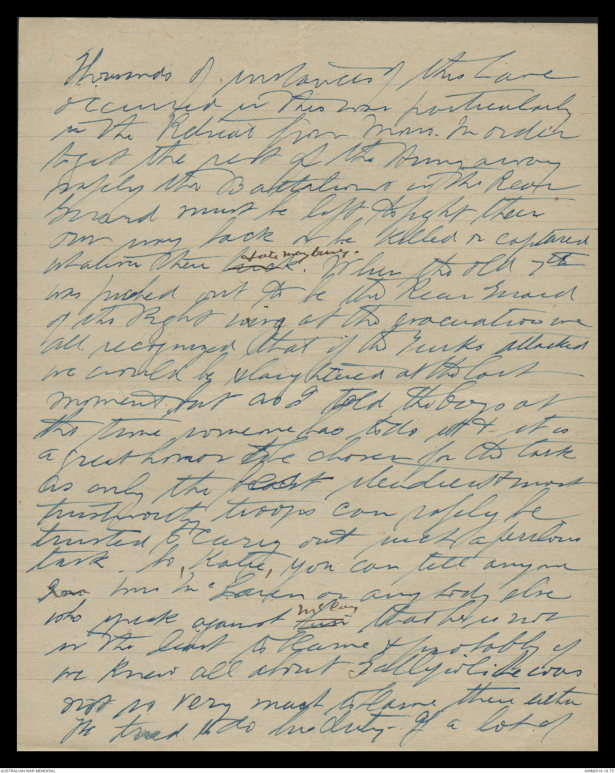 Thousands of instances of this have
occurred in this war particularly
in the Retreat from Mons. In order
to get the rest of the Army away
safely the Battalions in the Rear
Guard must be left to fight their
own way back or be killed or captured
whatever their luck fate may bring. When the old 7th
was picked out to be the Rear Guard
of the Right wing at the evacuation we
all recognized that if the Turks attacked
we would be slaughtered at the last
moment, but as I told the boys at
the time someone has to do it & it is
a great honor to be chosen for the task
as only the best steadiest most
trustworthy troops can safely be
trusted to carry out such a perilous
task. So, Katie, you can tell anyone
Mrs McLaren or any body else
who speak against McCay that he is not
in the least to blame & probably if
we knew all about Gallipoli he was
not so very much to blame there either
He tried to do his duty - If a lot of
AUSTRALIAN WAR MEMORIAL